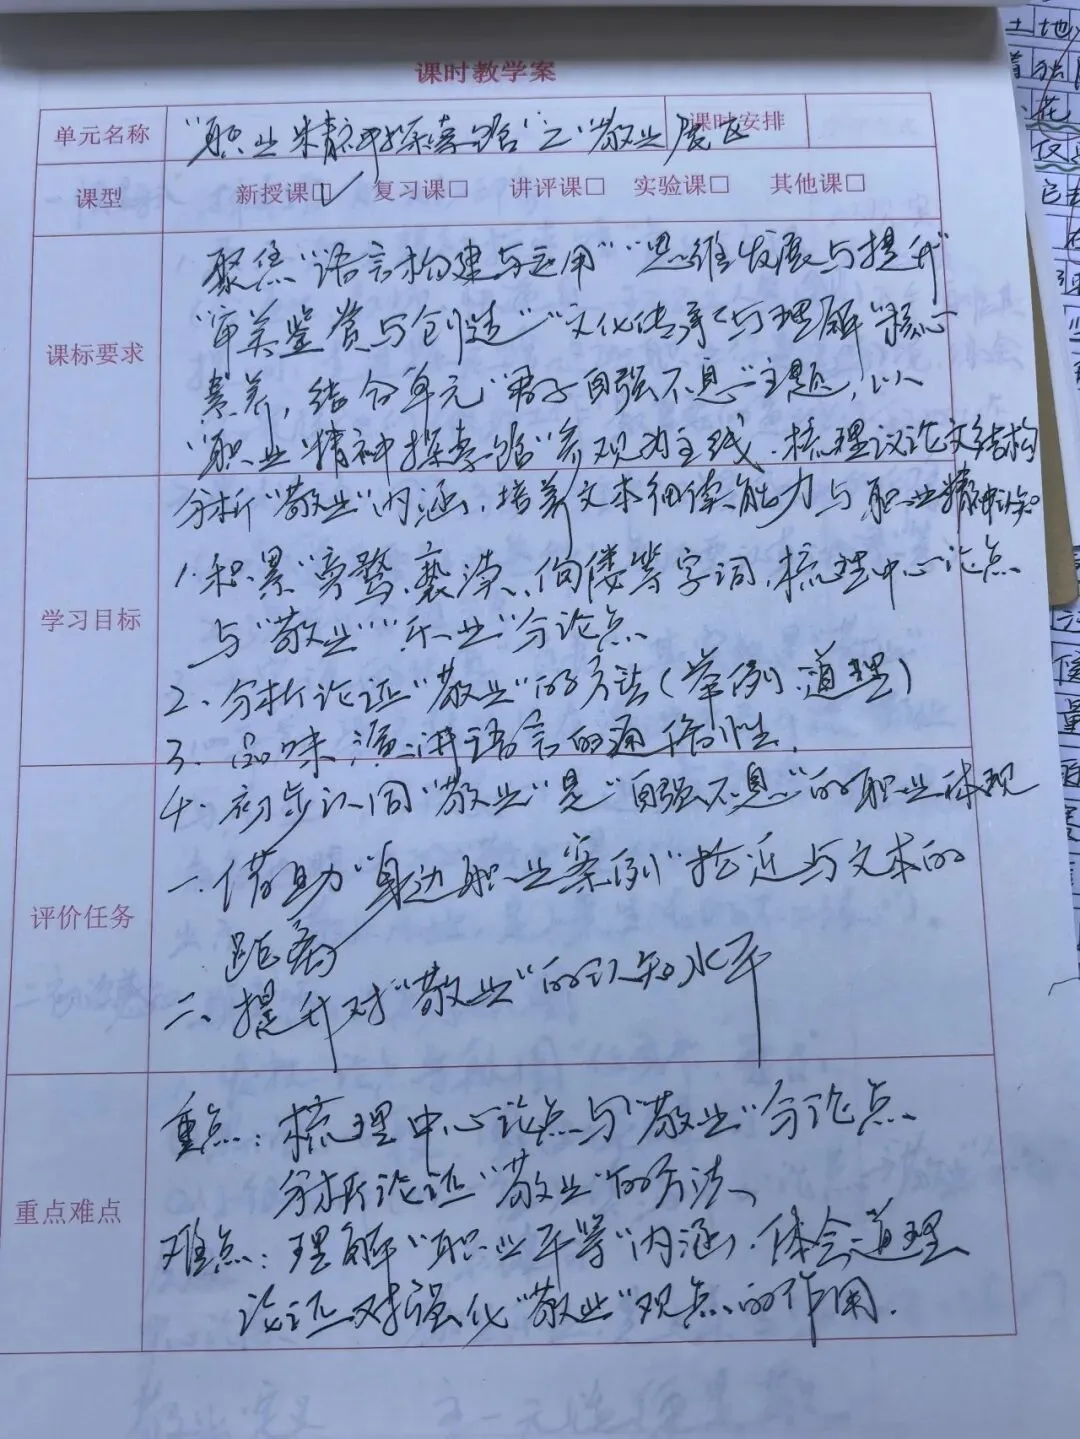 课时教学案
单元名称 "职业精神探索馆"之"敬业展区 课时安排
课型 新授课☑ 复习课□ 讲评课□ 实验课□ 其他课□
聚焦"语言构建与运用""思维发展与提升"
"审美鉴赏与创造""文化传承与理解"核心
课标要求
素养,结合单元"君子自强不息"主题,以
"职业精神探索馆"参观为主线.梳理议论文结构
分析"敬业"内涵,培养文本细读能力与职业精神认知
1.积累"旁骛、亵渎、佝偻等字词,梳理中心论点
学习目标
与"敬业""乐业"分论点
2、分析论证"敬业"的方法(举例、道理)
3、品味演讲语言的通俗性.
4、初步认同"敬业"是"自强不息"的职业体现
一.借助"身边职业案例"拉近与文本的
评价任务
距离
二、提升对"敬业"的认知水平
重点:梳理中心论点与"敬业"分论点
分析论证"敬业"的方法、
重点难点
难点:理解"职业平等"内涵,体会道理
论证对强化"敬业"观点的作用.